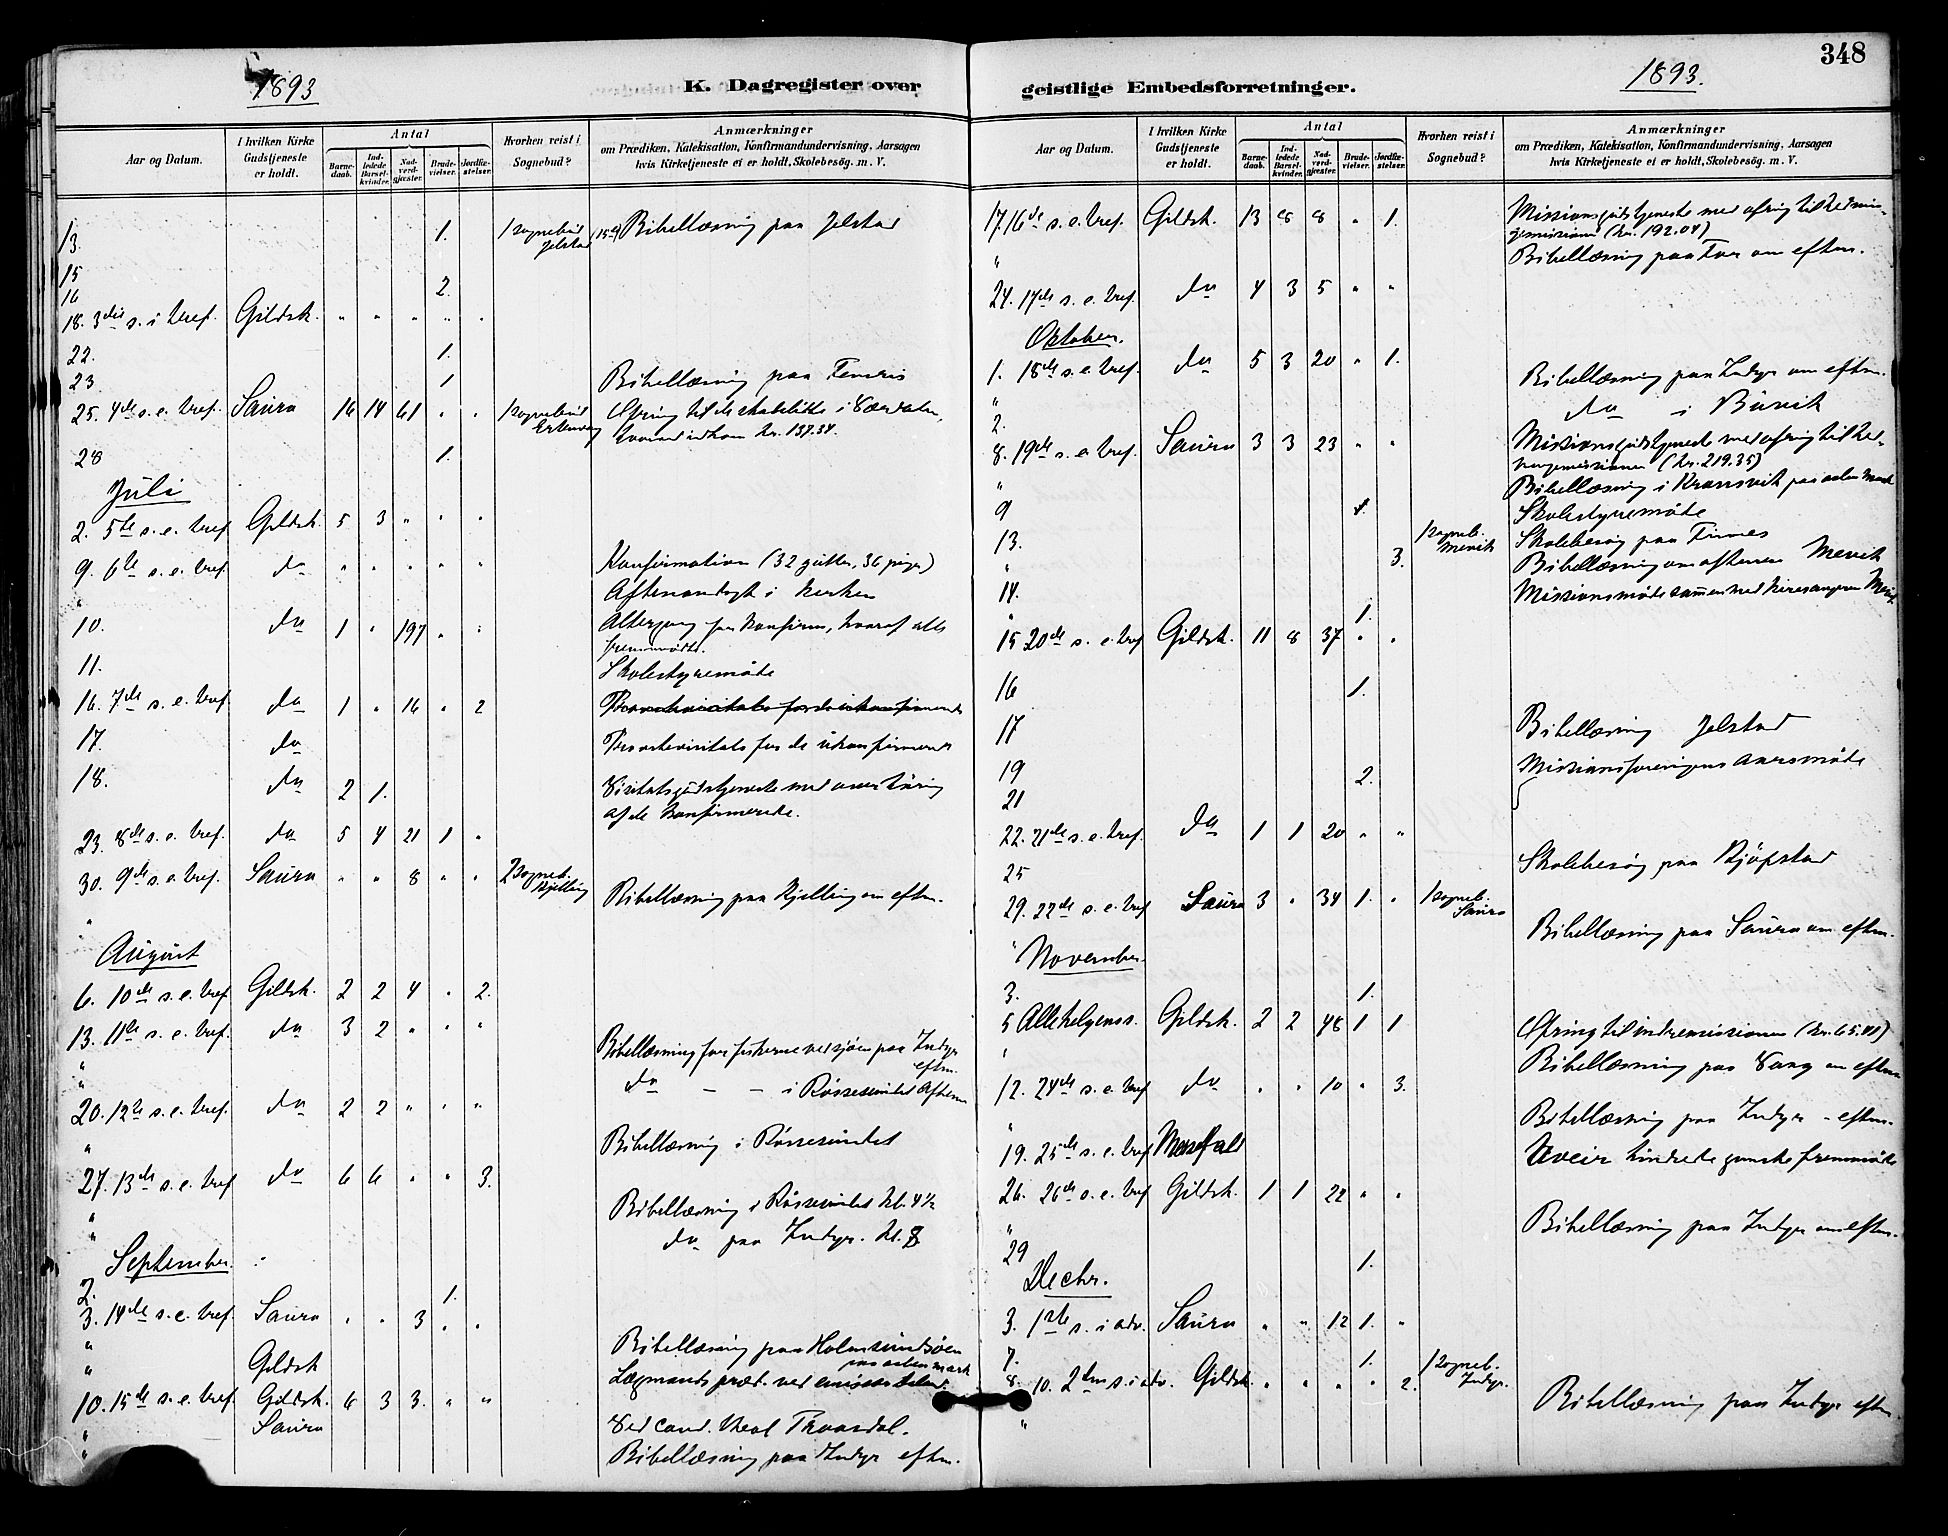 348
1893
K. Dagregister over
geistlige Embedsforretninger.
1893.
Aar og Datum.
I hvilken Kirke Gudstjeneste er holdt.
Antal
Barne-daab.
Ind-ledede Barsel-kvinder.
Nad-verd-gjæster.
Brude-vielser.
Jordfæ-stelser.
Hvorhen reist i Sognebud?
Anmærkninger
om Prædiken, Katekisation, Konfirmandundervisning, Aarsagen
hvis Kirketjeneste ei er holdt, Skolebesög. m. V.
13. 1. 1 sognebud Jelstad (15de) Bibellæsning paa Jelstad
15
16 2.
18. 3die s. i tref. Gildsk. " " " " "
22. 1.
23 1. Bibellæsning paa
25. 4de s. e. tref. Saura 16 14 61 " " 1 sognebud Ofring til de skadelidte i Værdalen,
kr. 137.34.
28 1.
Juli
2. 5te s. e. tref. Gildsk. 5 3 " " "
9. 6te s. e. tref. do " " " " " Konfirmation (32 gutter, 36 piger)
" Aftenandagt i kirken
10. do 1 " 197 " " Altergang for konfirm., hvoraf alle
fremmødte.
11. Skolestyremøde
16. 7de s. e. tref. do 1 " 16 " 2
17. do Provstevisitats for de ukonfirmerede
18. do 2 1. Visitatsgudstjeneste med overhøring
af de konfirmerede.
23. 8de s. e. tref. do 5 4 21 1 "
30. 9de s. e. tref. Saura " " 8 " " 2 sogneb. Kjelling
" Bibellæsning paa Kjelling om eftm.
August
6. 10de s. e. tref. Gildsk. 2 2 4 " 2.
13. 11te s. e. tref. do 3 2 " " "
" Bibellæsning for fiskerne ved sjøen paa Indyr eftm.
" do – – i Røssesundet Aftenen
20. 12te s. e. tref. do 2 2 " " "
" Bibellæsning i Røssesundet
27. 13de s. e. tref do 6 6 " " 3.
" Bibellæsning i Røssesundet kl. 4½
" do paa Indyr. kl. 8
September.
2. 1.
3. 14de s. e. tref. Saura " " 3 " "
" Bibellæsning paa Holmsundsøen
" Gildsk Lægmands præd. ved
10. 15de s. e. tref. Gildsk. 6 3 3. " "
Saura Ved cand. theol Traasdal.
" Bibellæsning paa Indyr eftm.
17. 16de s. e. tref. Gildsk. 13 8 8 " 1. Missionsgudstjeneste med ofring til hedninge-
missionen (kr. 192.04)
" Bibellæsning paa om eftm.
24. 17de s. e. tref. do 4 3 5 " "
Oktober.
1. 18de s. e. tref. do 5 3 20 " 1.
" Bibellæsning paa Indyr om eftm.
2. do i Buvik
8. 19de s. e. tref. Saura 3 3 23 " " Missionsgudstjeneste med ofring til hed-
ningemissionen (kr. 219.35)
" Bibellæsning i Kransvik paa
9 1. Skolestyremøde
13. 1 sogneb. Mevik Skolebesøg paa Finnes
" 3. Bibellæsning om aftenen Mevik
14. Missionsmøde sammen med
" 1.
15 20de s. e. tref Gildsk. 11 8 37 " "
16 1.
17 Bibellæsning Jelstad
19 2. Missionsforeningens aarsmøde
21
22. 21de s. e. tref. do 1 1 20 " "
25 Skolebesøg paa Kjøpstad
29. 22de s. e. tref Saura 3 " 34 1. " 1 sogneb. Saura
" Bibellæsning paa Saura om eftm.
November.
3. 1.
5 Allehelgenss. Gildsk. 2 2 48 1 1 Ofring til indremissionen
" Bibellæsning paa Vang om eftm
12. 24de s. e. tref do " " 10 " 3.
" Bibellæsning paa Indyr – eftm.
19. 25de s. e. tref Uveir hindrede ganske fremmøde
26. 26de s. e. tref Gildsk. 1 1 22 " "
" Bibellæsning paa Indyr om eftm.
29 1.
Decbr.
3. 1ste s. i adv. Saura " " 12 1. "
7. 1. 1 Sogneb. Indyr.
8. 10. 2den s. i adv. Gildsk. " " " " 2.
" Bibellæsning paa Indyr eftm.